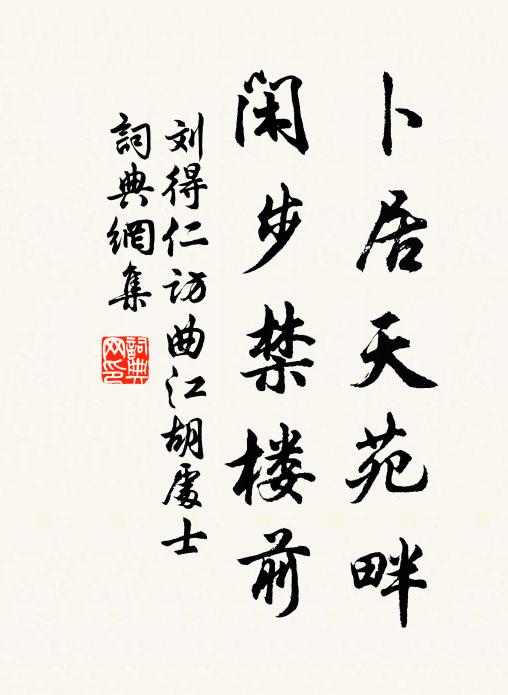 卜居天苑畔
闲步禁楼前
刘得仁访曲江胡處士
詞典網集
詞典网印